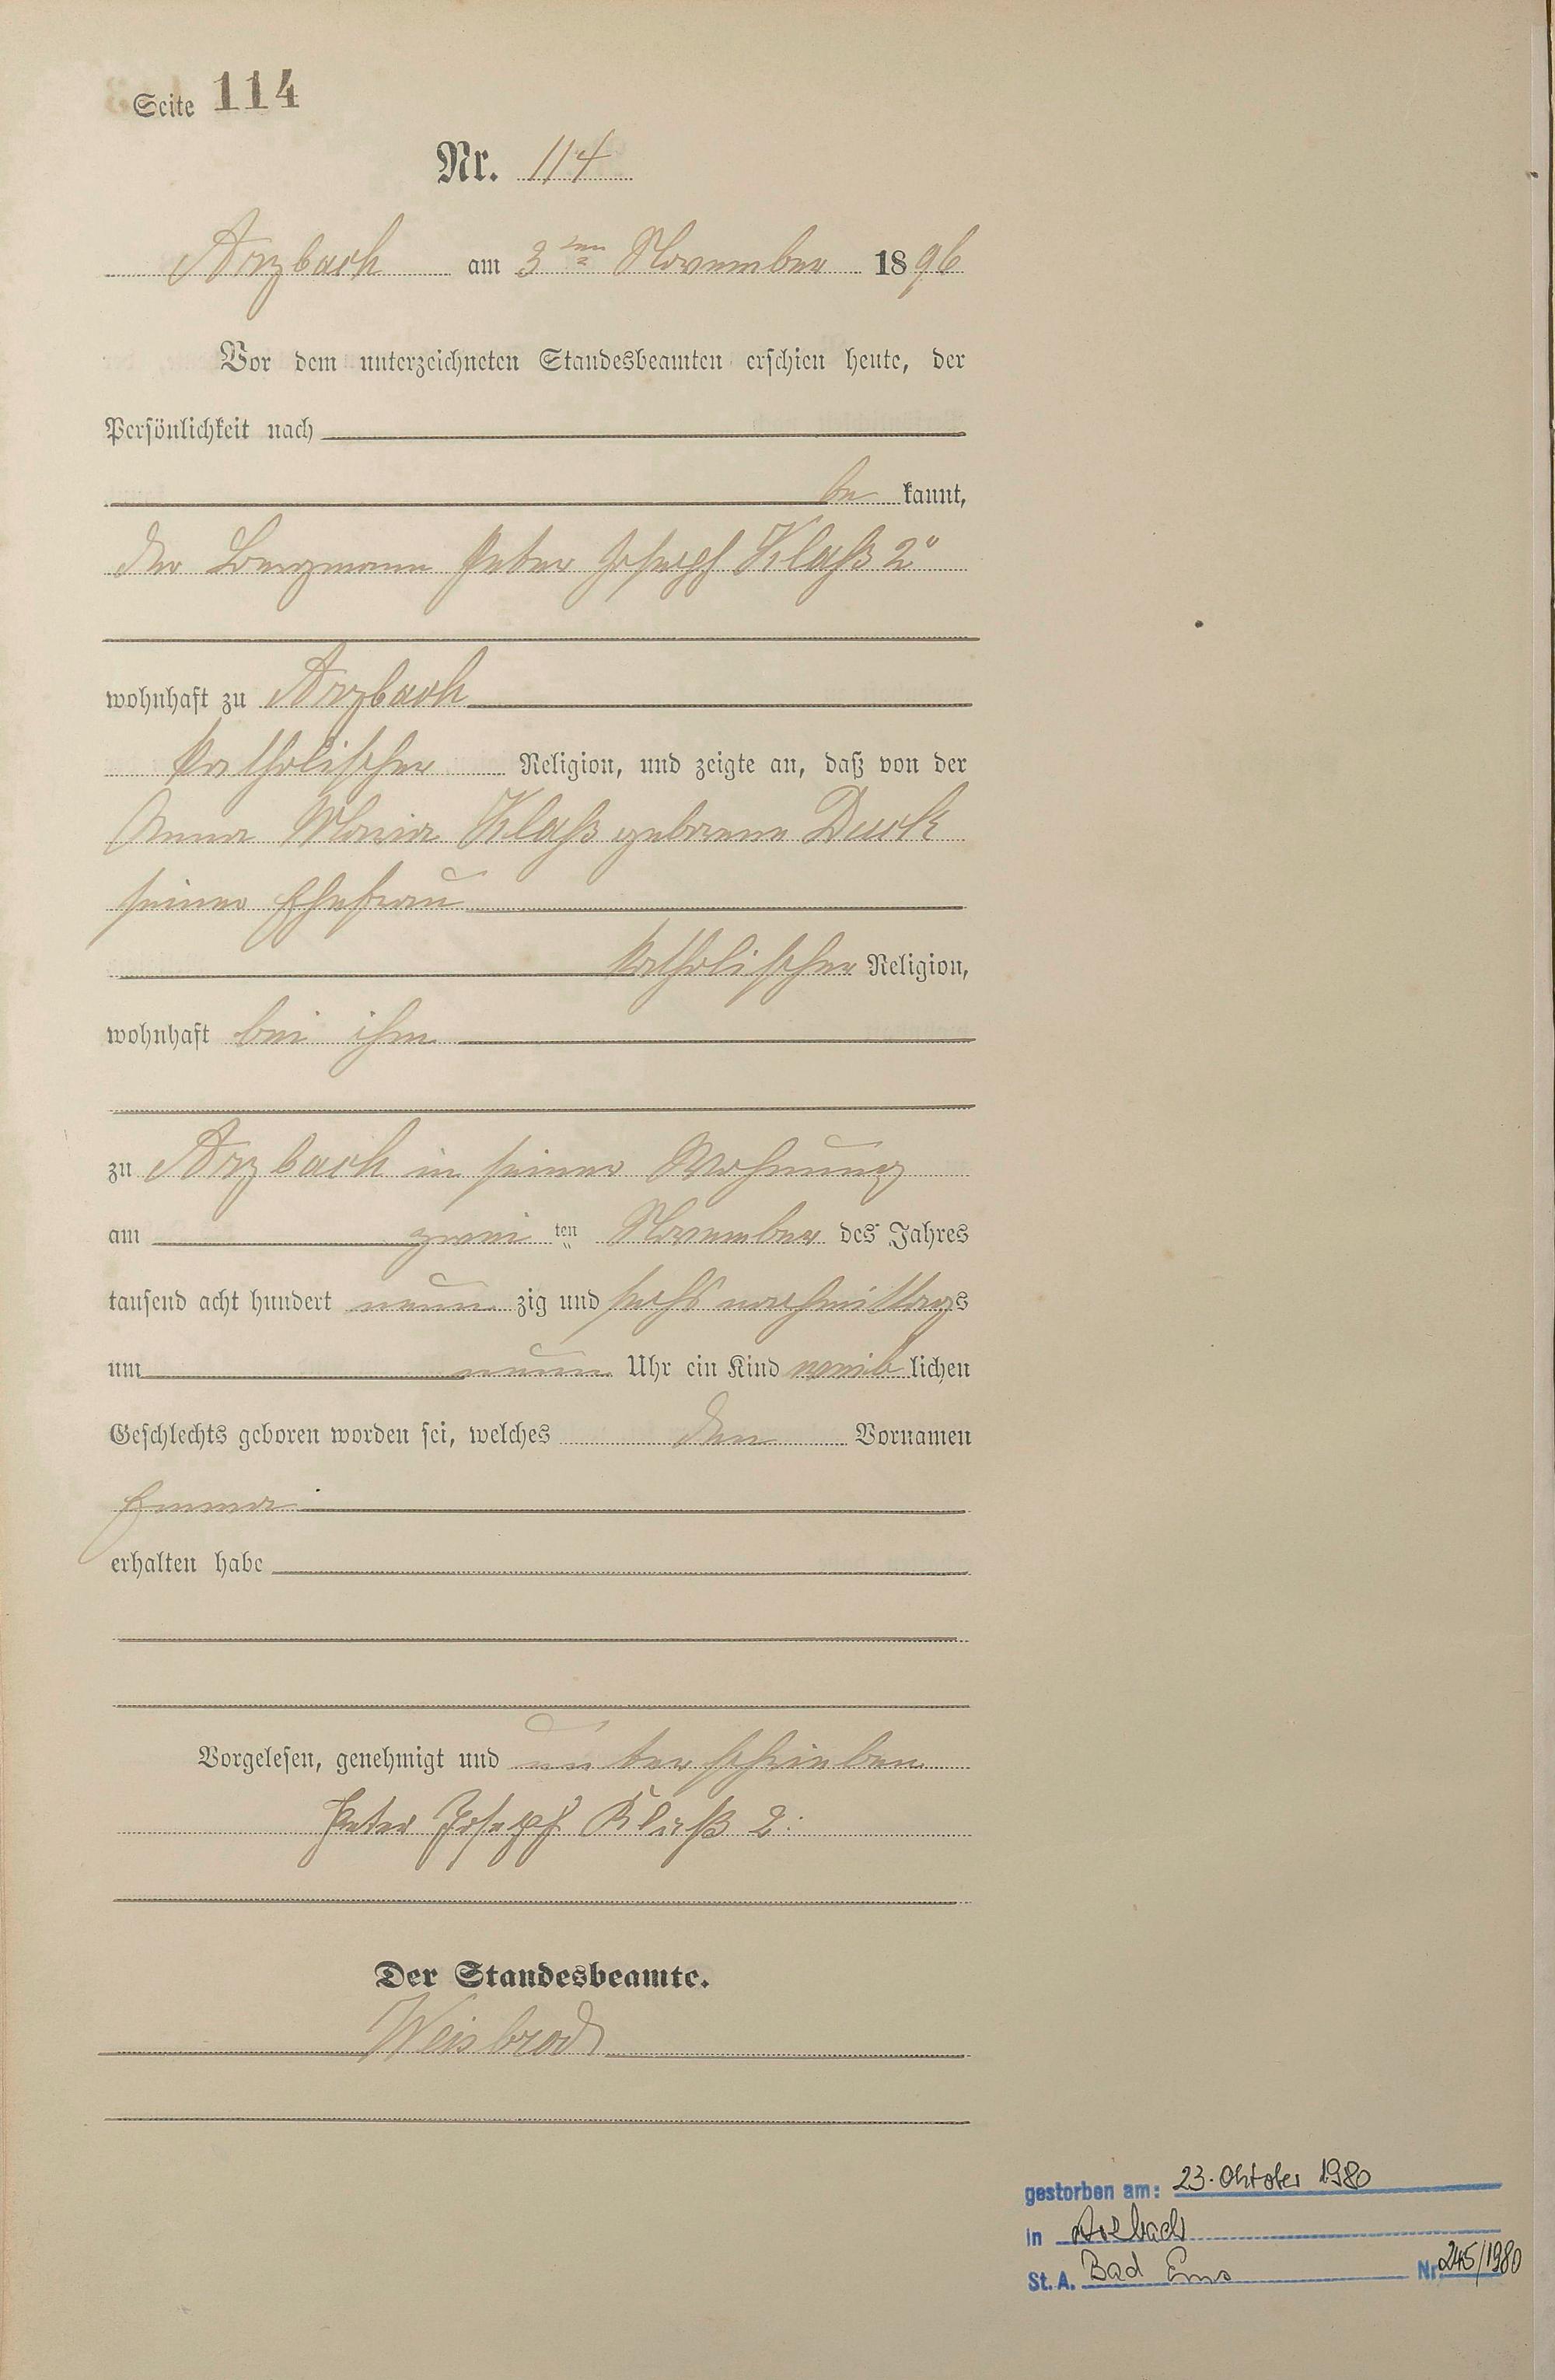 Seite 114
Nr. 114
Arzbach am 3ten November 1896
Vor dem unterzeichneten Standesbeamten erschien heute, der
Persönlichkeit nach
be kannt,
der Bergmann Peter Joseph Klaß 2r
wohnhaft zu Arzbach
katholischer Religion, und zeigte an, daß von der
Anna Maria Klaß geborene Duck
seiner Ehefrau
katholischer Religion,
wohnhaft bei ihm
zu Arzbach in seiner Wohnung
am zwei ten November des Jahres
tausend acht hundert neun zig und sechs nachmittags
um neun Uhr ein Kind weib lichen
Geschlechts geboren worden sei, welches den Vornamen
Emma
erhalten habe
Vorgelesen, genehmigt und unterschrieben
Peter Joseph Klaß 2.
Der Standesbeamte.
Weisbrod
gestorben am: 23. Oktober 1980
in Arzbach
St. A. Bad Ems Nr. 245/1980